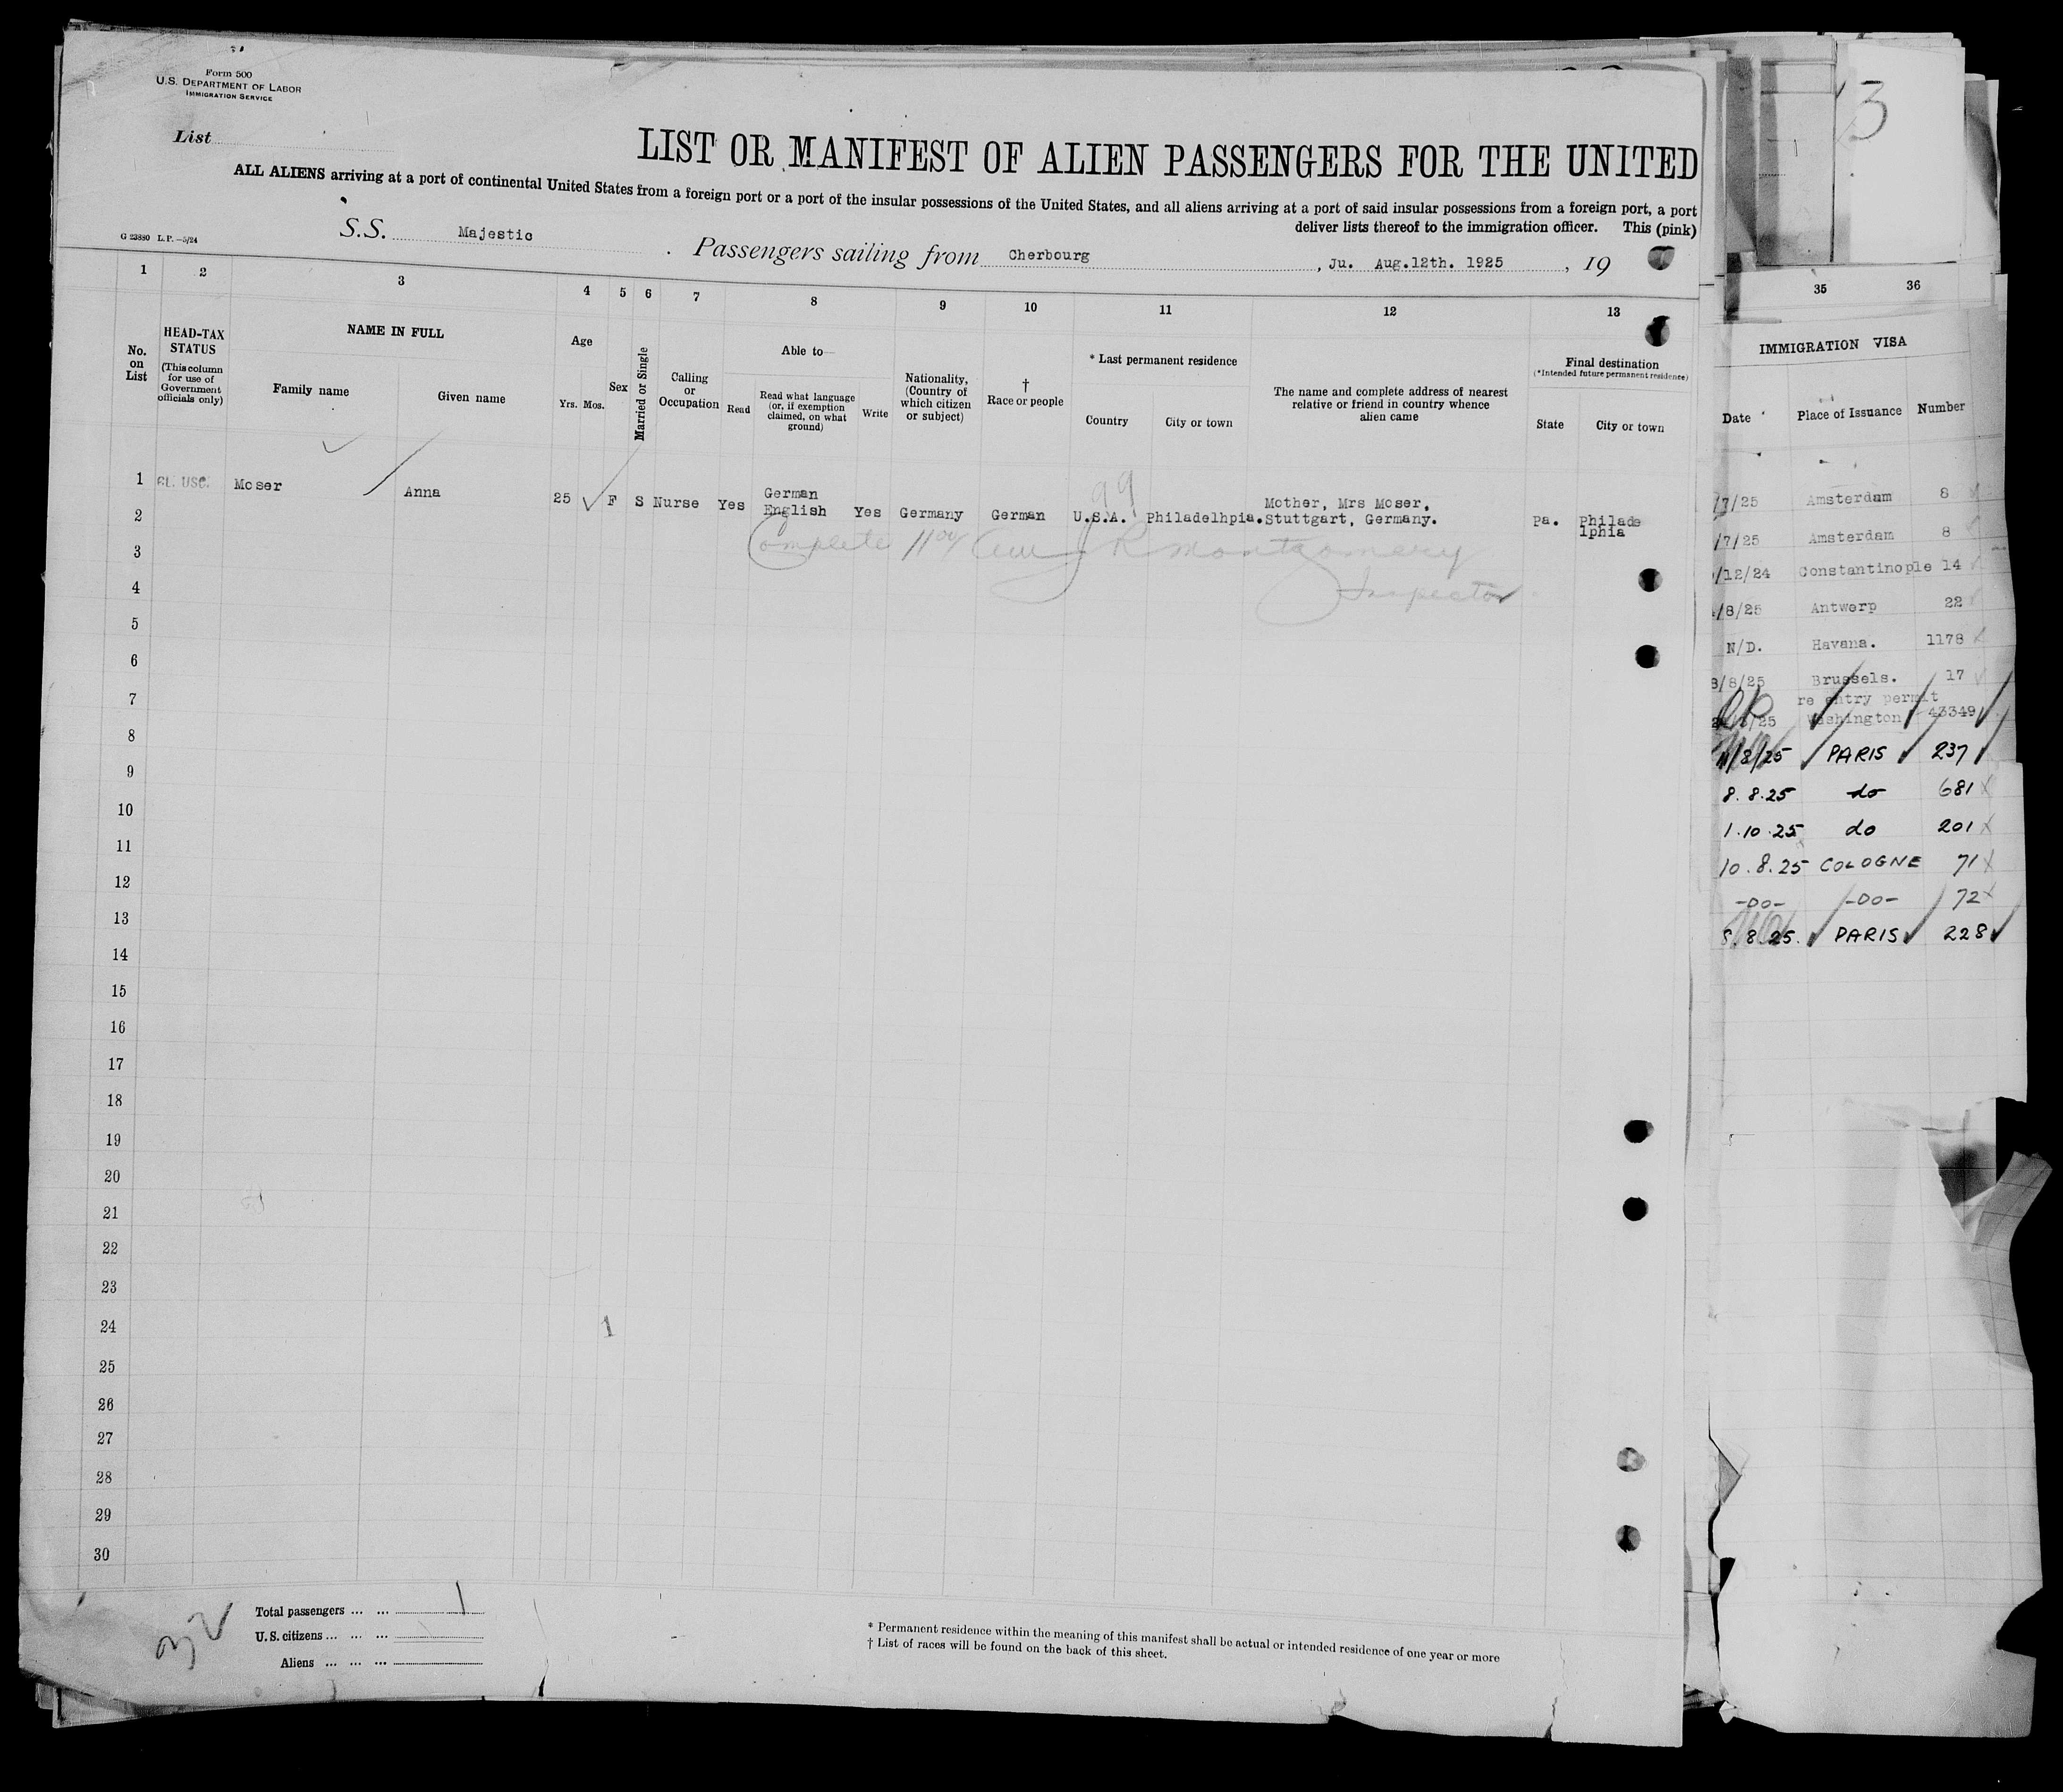 Form 500
U.S. DEPARTMENT OF LABOR
IMMIGRATION SERVICE
List
LIST OR MANIFEST OF ALIEN PASSENGERS FOR THE UNITED
ALL ALIENS arriving at a port of continental United States from a foreign port or a port of the insular possessions of the United States, and all aliens arriving at a port of said insular possessions from a foreign port, a port
deliver lists thereof to the immigration officer. This (pink)
G 23880 L.P.—5/24
S.S. Majestic . Passengers sailing from Cherbourg , Ju. Aug.12th. 1925 , 19
1 2 3 4 5 6 7 8 9 10 11 12 13
No. on List
HEAD-TAX STATUS
(This column for use of Government officials only)
NAME IN FULL
Family name
Given name
Age
Yrs. Mos.
Sex
Married or Single
Calling or Occupation
Able to—
Read
Read what language (or, if exemption claimed, on what ground)
Write
Nationality, (Country of which citizen or subject)
† Race or people
* Last permanent residence
Country
City or town
The name and complete address of nearest relative or friend in country whence alien came
Final destination
(*Intended future permanent residence)
State
City or town
1 Moser Anna 25 F S Nurse Yes German English Yes Germany German U.S.A. Philadelhpia. Mother, Mrs Moser, Stuttgart, Germany. Pa. Philade lphia
99
2
Complete R Montgomery
Inspector
3
4
5
6
7
8
9
10
11
12
13
14
15
16
17
18
19
20
21
22
23
24
1
25
26
27
28
29
30
Total passengers ... ... 1
U.S. citizens ... ... ...
Aliens ... ... ...
* Permanent residence within the meaning of this manifest shall be actual or intended residence of one year or more
† List of races will be found on the back of this sheet.
3
35 36
IMMIGRATION VISA
Date Place of Issuance Number
/7/25 Amsterdam 8
/7/25 Amsterdam 8
/12/24 Constantinople 14
/8/25 Antwerp 22
N/D. Havana. 1178
8/8/25 Brussels. 17
re entry permit
/25 Washington 43349
11/8/25 PARIS 237
8.8.25 do 681
1.10.25 do 201
10.8.25 COLOGNE 71
-DO- -DO- 72
8.8.25. PARIS 228